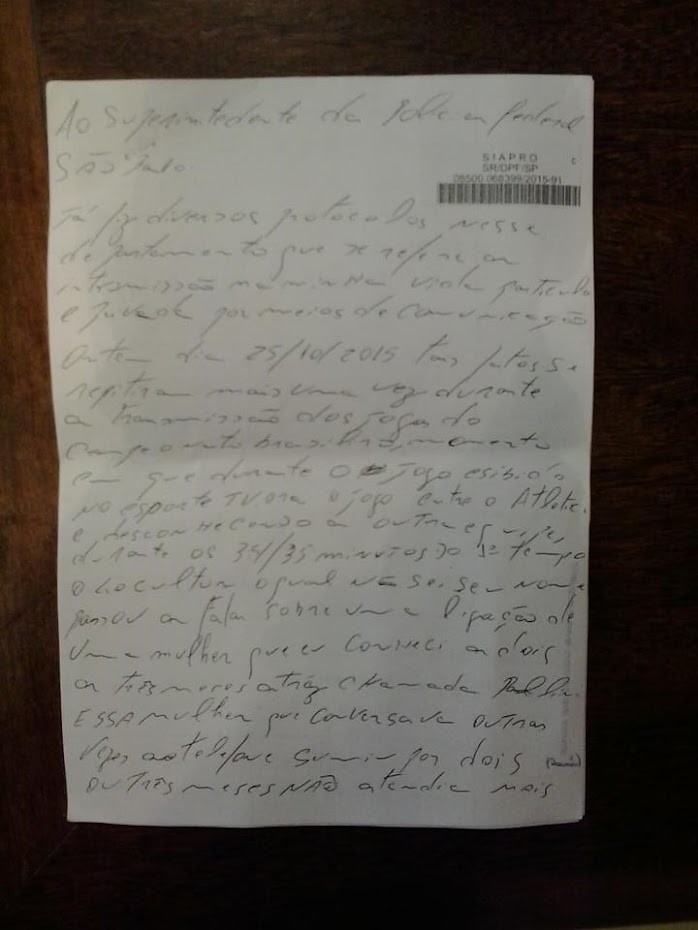 Ao Superintedente da Policia Federal
São Paulo.
SIAPRO
SR/DPF/SP
08500.068399/2015-91
Já fiz diversos protocolos nesse
departamento que se refere a
intromissão na minha vida particular
e privada por meios de comunicação
Ontem dia 25/10/2015 tais fatos se
repitiram mais uma vez durante
a transmissão dos jogos do
campeonato brasileiro, momento
em que durante o jogo esibido
no esporte TV ora o jogo entre o Atletic
e desconhecendo a outra equipe,
durante os 34/35 minutos do 1º tempo
o locultor o qual não sei seu nome
passou a falar sobre uma ligação de
uma mulher que eu conheci a dois
a três meses atráz chamada
ESSA mulher que conversava outras
vezes ao telefone sumiu por dois
ou três meses NÃO atendia mais